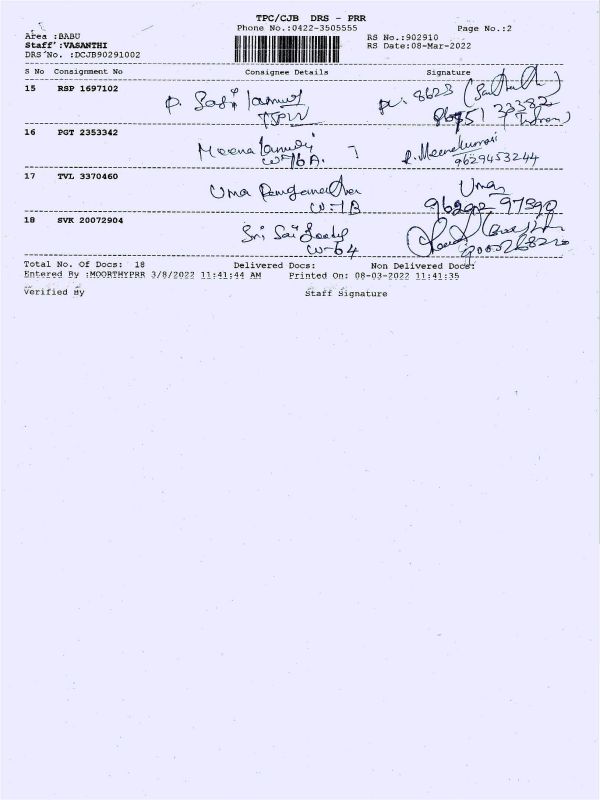 TPC/CJB DRS - PRR
Phone No.:0422-3505555 Page No.:2
Area :BABU RS No.:902910
Staff :VASANTHI RS Date:08-Mar-2022
DRS No. :DCJB90291002
S No Consignment No Consignee Details Signature
15 RSP 1697102 P. Sasi
16 PGT 2353342 Meena
W-76A. P. Meenakumari
9629453244
17 TVL 3370460 Uma Uma
W-1B
18 SVR 20072904 Sri Sai
W-64
Total No. Of Docs: 18 Delivered Docs: Non Delivered Docs:
Entered By :MOORTHYPRR 3/8/2022 11:41:44 AM Printed On: 08-03-2022 11:41:35
Verified By Staff Signature